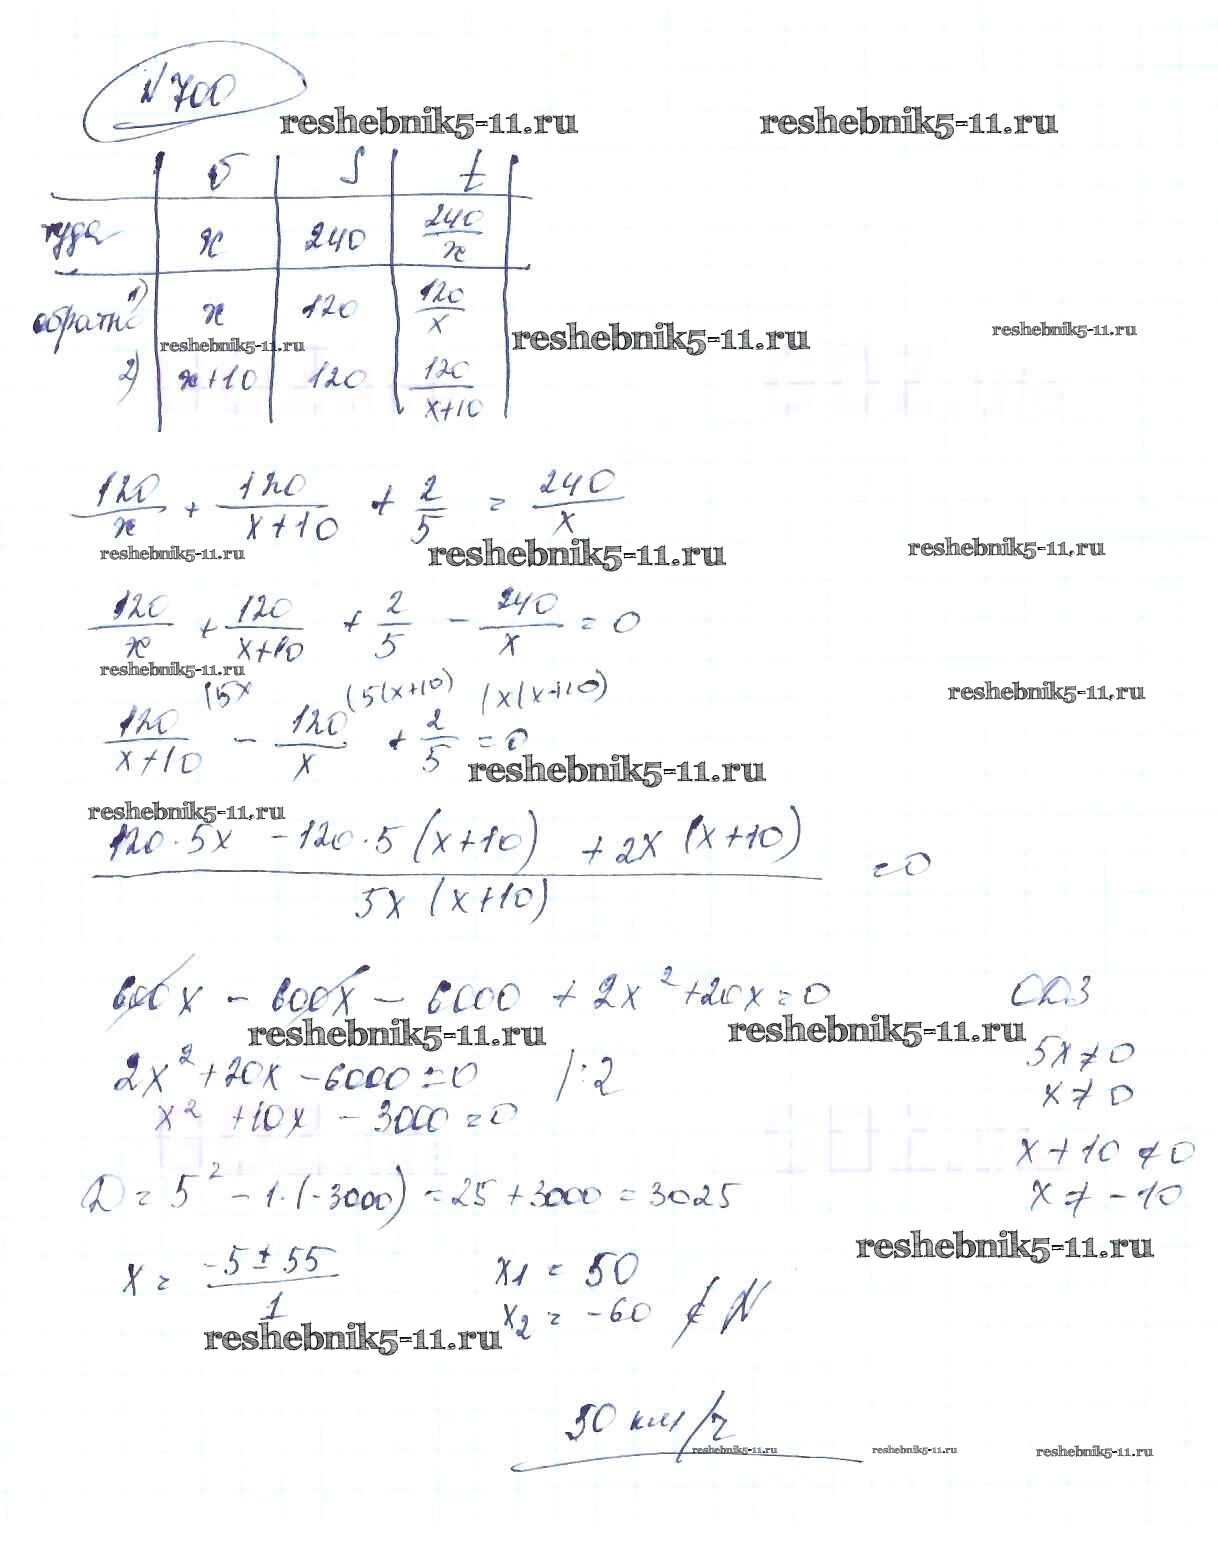 №700
reshebnik5-11.ru reshebnik5-11.ru
v S t
туда x 240 240/x
обратно 1) x 120 120/x
reshebnik5-11.ru reshebnik5-11.ru reshebnik5-11.ru
2) x+10 120 120/(x+10)
120/x + 120/(x+10) + 2/5 = 240/x
reshebnik5-11.ru reshebnik5-11.ru reshebnik5-11.ru
120/x + 120/(x+10) + 2/5 - 240/x = 0
reshebnik5-11.ru reshebnik5-11.ru
(5x (5(x+10) (x(x+10)
120/(x+10) - 120/x + 2/5 = 0
reshebnik5-11.ru
reshebnik5-11.ru
120·5x - 120·5(x+10) + 2x(x+10)
5x(x+10)
=0
600x - 600x - 6000 + 2x²+20x=0 ОДЗ
reshebnik5-11.ru reshebnik5-11.ru
2x²+20x-6000=0 /:2 5x≠0
x²+10x-3000=0 x≠0
x+10≠0
D=5²-1·(-3000)=25+3000=3025 x≠-10
reshebnik5-11.ru
x=(-5±55)/1 x1=50
x2=-60 ∉ N
reshebnik5-11.ru
50 км/ч
reshebnik5-11.ru reshebnik5-11.ru reshebnik5-11.ru